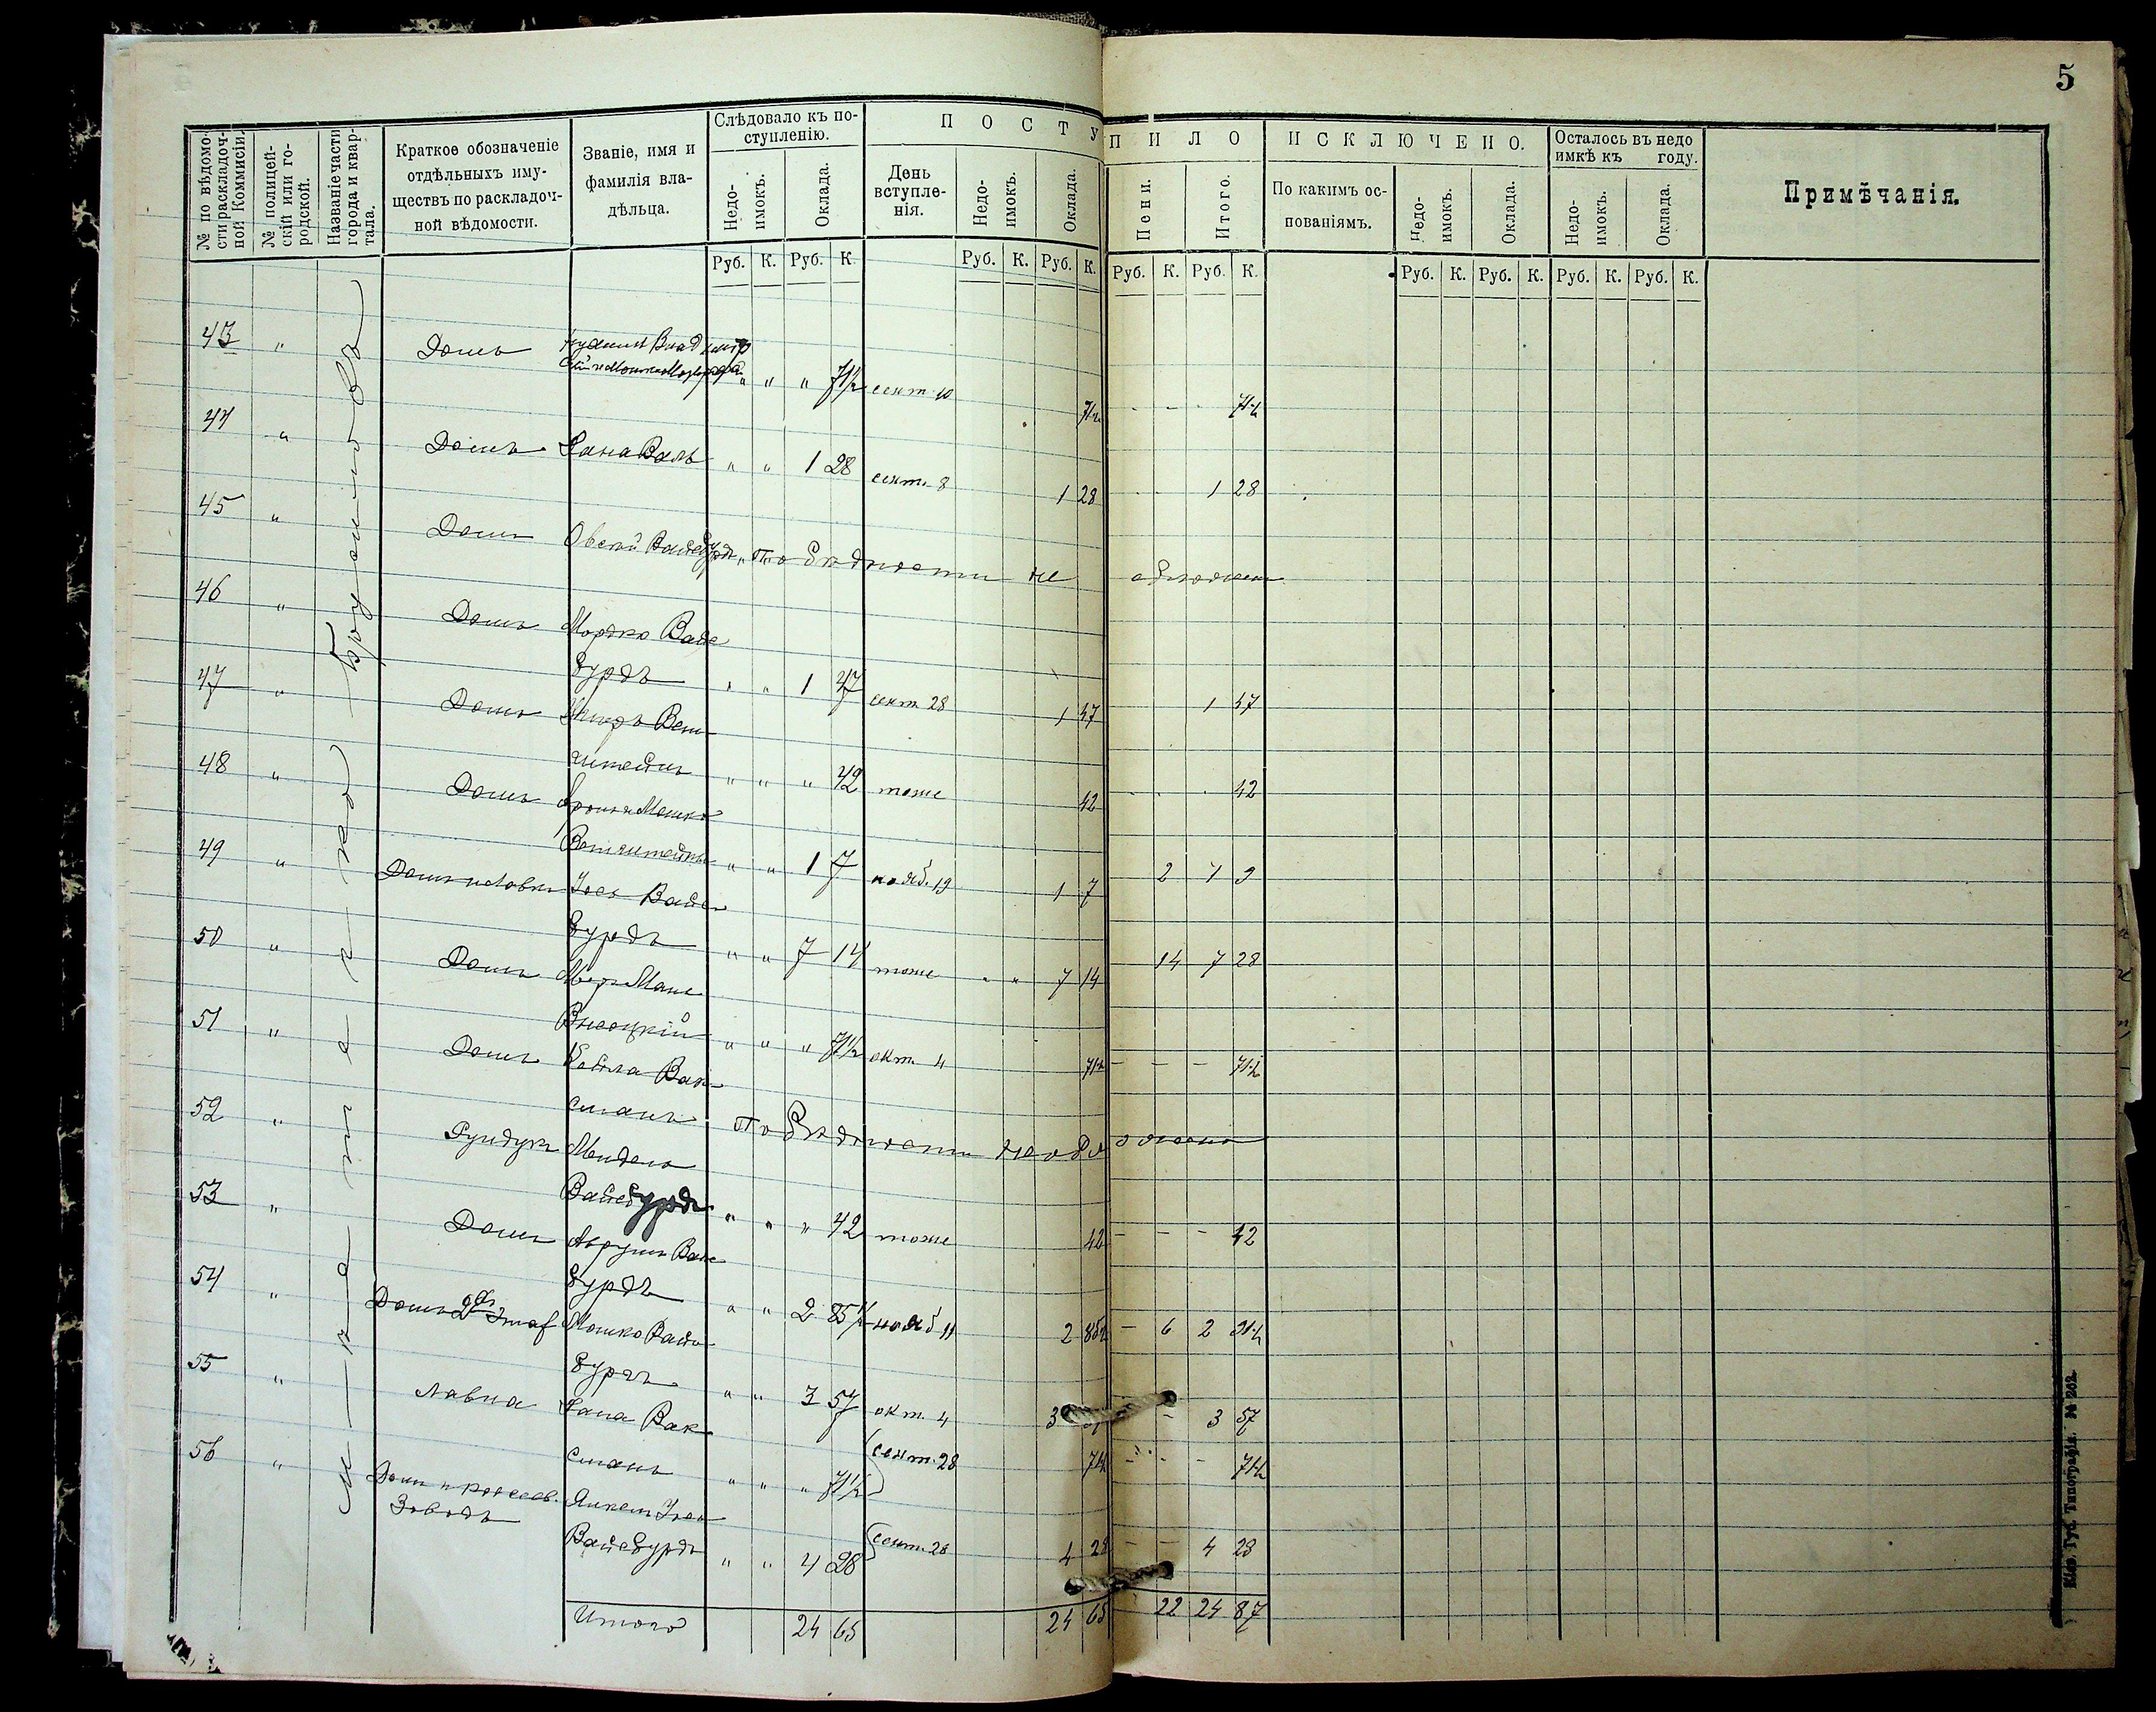 5
№ по вѣдомо-
сти раскладоч-
ной Коммисіи.
№ полицей-
скій или го-
родской.
Названіе части
города и квар-
тала.
Краткое обозначеніе
отдѣльныхъ иму-
ществъ по раскладоч-
ной вѣдомости.
Званіе, имя и
фамилія вла-
дѣльца.
Слѣдовало къ по-
ступленію.
Недо-
имокъ.
Оклада.
ПОСТУПИЛО
День
вступле-
нія.
Недо-
имокъ.
Оклада.
Пени.
Итого.
ИСКЛЮЧЕНО.
По какимъ ос-
нованіямъ.
Недо-
имокъ.
Оклада.
Осталось въ недо
имкѣ къ году.
Недо-
имокъ.
Оклада.
Примѣчанія.
Руб. К. Руб. К. Руб. К. Руб. К. Руб. К. Руб. К. Руб. К. Руб. К. Руб. К. Руб. К.
м-ко Брусиловъ
43 " Домъ
" " " 71½ сент. 10 71½ - - - 71½
44 " Домъ Хана Валь " " 1 28 сент. 8 1 28 1 28
45 " Домъ Овсей Вайсбурдъ По бѣдности не обложенъ
46 " Домъ Мордко Вайс
бурдъ " " 1 47 сент 28 1 47 1 47
47 " Домъ Вен-
штейнъ " " " 42 тоже 42 42
48 " Домъ Мошко
Венштейнъ " " 1 7 нояб. 19 1 7 2 1 9
49 " Домъ и Лавки Іось Вайс
бурдъ " " 7 14 тоже " " 7 14 14 7 28
50 " Домъ
Высоцкій " " " 71½ окт. 4 71½ - - - 71½
51 " Домъ Бейла Вак-
сманъ По бѣдности не обложено
52 " Рундукъ Мендель
Вайсбурдъ " " " 42 тоже 42 - - - 42
53 " Домъ Аврумъ Вайс
бурдъ " " 2 85½ нояб 11 2 85½ - 6 2 91½
54 " Домъ 2хъ Этаж Мошко Вайс
бурдъ " " 3 57 окт. 4 3 57 - 3 57
55 " Лавка Хана Вак
сманъ " " " 71½ сент. 28 71½ - - - 71½
56 " Домъ и кожев.
Заводъ Янкель Іось
Вайсбурдъ " " 4 28 сент. 28 4 28 - - 4 28
Итого 24 65 24 65 22 24 87
Кіев. Губ. Типографія. № 202